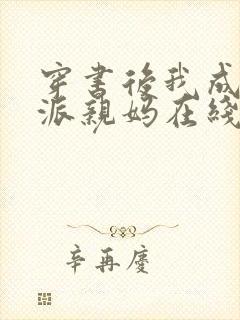 穿書後我成
派親媽在綫
辛再慶